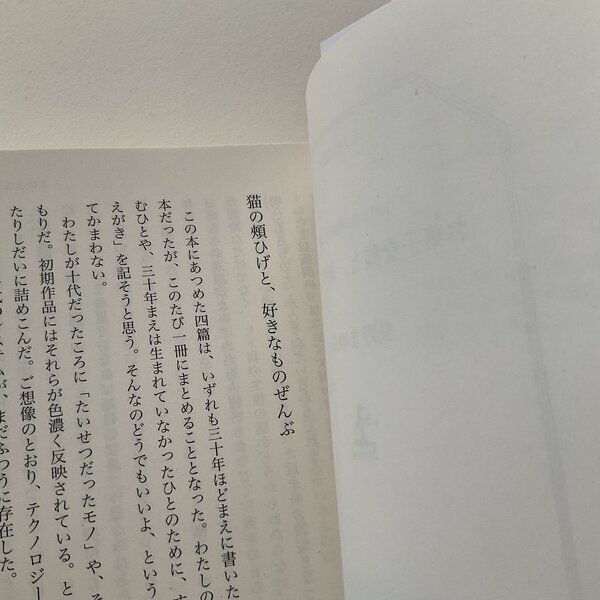 猫の頬ひげと、好きなものぜんぶ
この本にあつめた四篇は、いずれも三十年ほどまえに書いた
本だったが、このたび一冊にまとめることとなった。わたしの
むひとや、三十年まえは生まれていなかったひとのために、
えがき」を記そうと思う。そんなのどうでもいいよ、という
てかまわない。
わたしが十代だったころに「たいせつだったモノ」や、そ
もりだ。初期作品にはそれらが色濃く反映されている。と
たりしだいに詰めこんだ。ご想像のとおり、テクノロジー
ステムが、まだふつうに存在した。